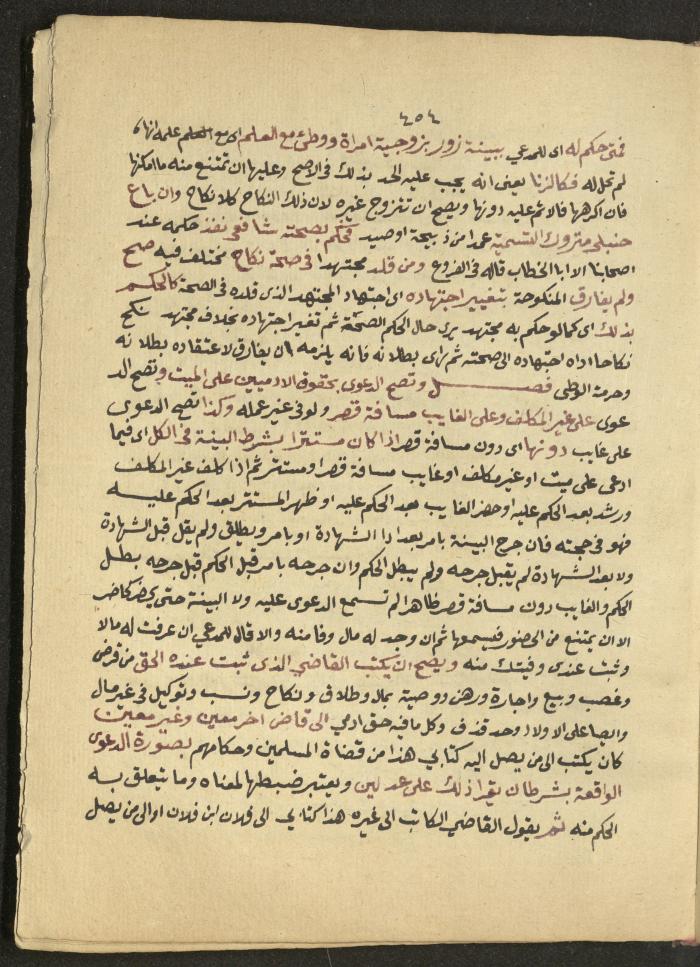 ٤٥٤
فمتى حكم له اى للمدعي ببينة زور بزوجية امراة ووطئ مع العلم اى مع علمه انها
لم تحل له فكالزنا يعنى انه يجب عليه الحد بذلك فى الاصح وعليها ان تمتنع منه ما امكنها
فان اكرهها فالاثم عليه دونها ويصح ان تتزوج غيره لان ذلك النكاح كلا نكاح وان باع
حنبلى متروك التسمية عمدا من ذبيحة او صيد فحكم بصحته شافعى نفذ حكمه عند
اصحابنا الا ابا الخطاب قاله فى الفروع ومن قلد مجتهدا فى صحة نكاح مختلف فيه صح
ولم يفارق المنكوحة بتغيير اجتهاده اى اجتهاد المجتهد الذى قلده فى الصحة كالحكم
بذلك اى كما لو حكم به مجتهد يرى حال الحكم الصحة ثم تغير اجتهاده بخلاف مجتهد نكح
نكاحا اداه اجتهاده الى صحته ثم راى بطلانه فانه يلزمه ان يفارق لاعتقاده بطلانه
وحرمة الوطى فصل وتصح الدعوى بحقوق الادميين على الميت وتصح الد
عوى على غير المكلف وعلى الغايب مسافة قصر ولو فى غير عمله وكذا تصح الدعوى
على غايب دونها اى دون مسافة قصر اذا كان مستترا بشرط البينة فى الكل اى فيما
ادعى على ميت او غير مكلف او غايب مسافة قصر او مستتر ثم اذا كلف غير المكلف
ورشد بعد الحكم عليه او حضر الغايب بعد الحكم عليه او ظهر المستتر بعد الحكم عليه
فهو فى حجته فان جرح البينة بامر بعد ادا الشهادة او بامر ويطلق ولم يقل قبل الشهادة
ولا بعد الشهادة لم يقبل جرحه ولم يبطل الحكم وان جرحه بامر قبل الحكم قبل جرحه بطل
الحكم والغايب دون مسافة قصر ظاهرا لم تسمع الدعوى عليه ولا البينة حتى يحضر كحاضر
الا ان يمتنع من الحضور فيسمعها ثم ان وجد له مال وفا منه والا قال للمدعي ان عرفت له مالا
وثبت عندى وفيتك منه ويصح ان يكتب القاضي الذى ثبت عنده الحق من قرض
وغصب وبيع واجارة ورهن ووصية بمال وطلاق ونكاح ونسب وتوكيل فى غير مال
وايصا على الاولاد وحد قذف وكل ما فيه حق ادمي الى قاض اخر معين وغير معين
كان يكتب الى من يصل اليه كتابي هذا من قضاة المسلمين وحكامهم بصورة الدعوى
الواقعة بشرط ان يقرا ذلك على عدلين ويعتبر ضبطها لمعناه وما يتعلق به
الحكم منه ثم يقول القاضي الكاتب الى غيره هذا كتابي الى فلان ابن فلان او الى من يصل